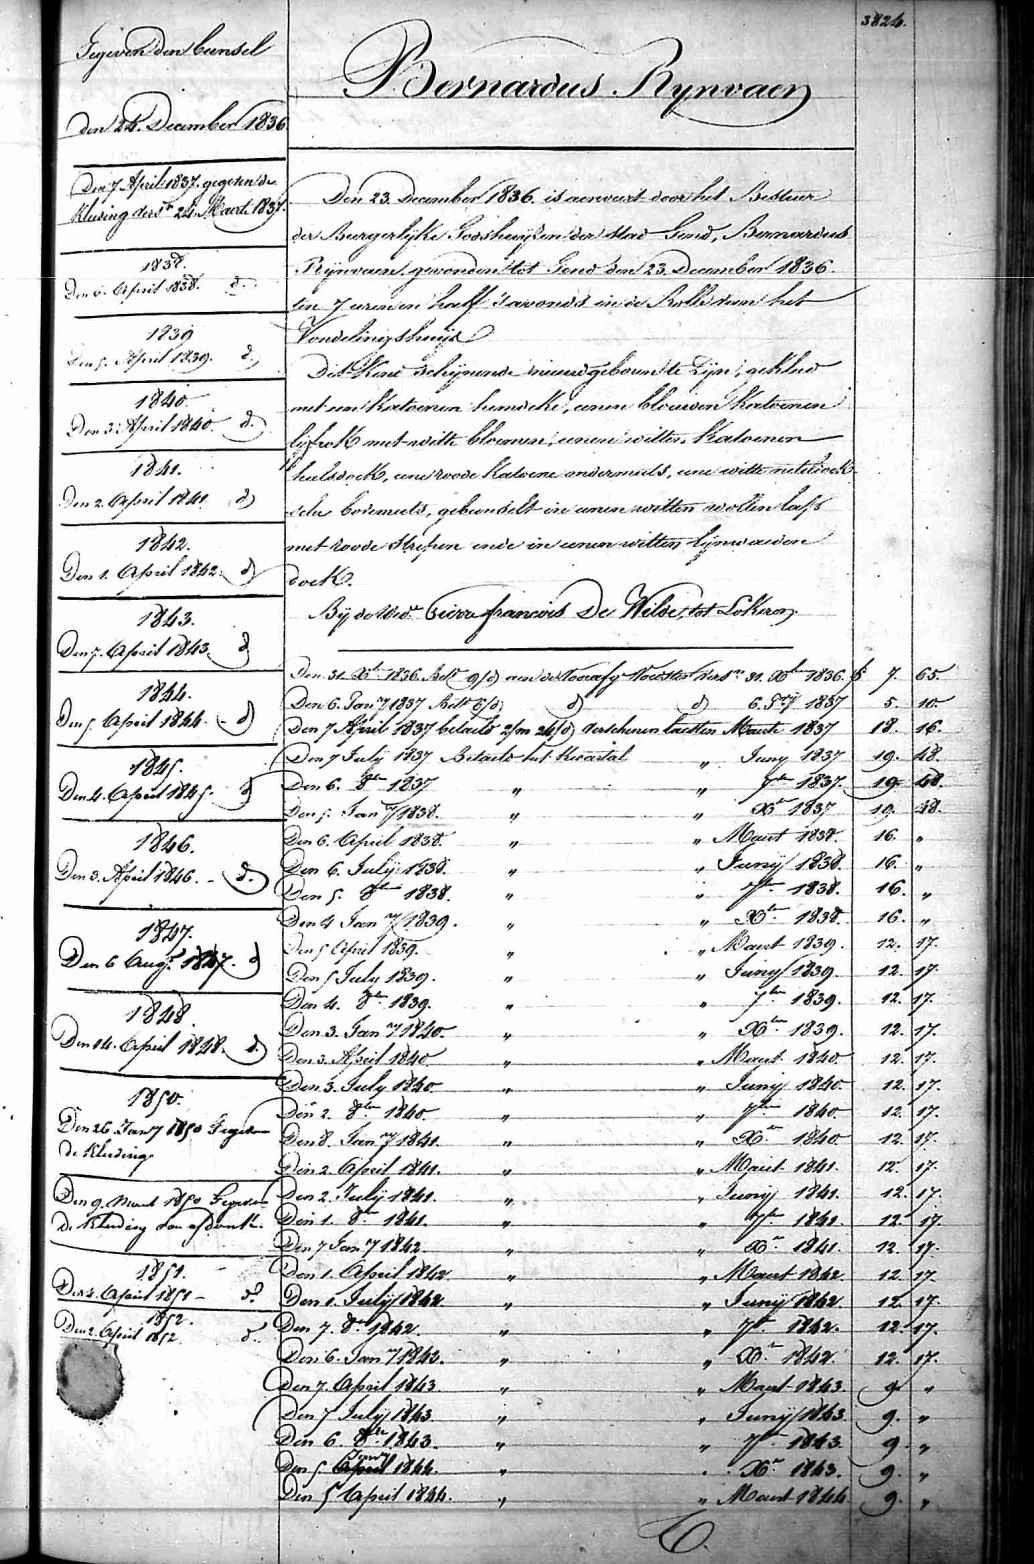 3824.
Bernardus Rynvaen
Gegeven den bunsel
den 24. December 1836
Den 7 April 1837. gegeven de
Kleeding ders. 24. Maart 1837.
1838.
Den 6. April 1838. d.
1839
Den 5. April 1839. d.
1840
Den 3. April 1840. d.
1841.
Den 2. April 1841. d
1842.
Den 1. April 1842. d
1843.
Den 7. April 1843. d
1844.
Den 5 April 1844. d
1845.
Den 4. April 1845. d
1846.
Den 3. April 1846. - d.
1847.
Den 6 Augt. 1847. d
1848
Den 14. April 1848. d.
1850.
Den 26. Jany 1850 Gegeven
de Kleeding
Den 9. Maart 1850 Gegeven
de Kleeding van
1851.
Den 4. April 1851 - d.
1852.
Den 2. April 1852. d.
Den 23. December 1836. is aenveert door het Bestuur
der Burgerlyke Godshuyzen der stad Gend, Bernardus
Rynvaen, gevonden tot Gend den 23. December 1836.
ten 7 uren en half 's avonds in de Rolle van het
Vondelingshuys
Dit Kind schynende nieuwgeboren te zyn, gekleed
met een Katoenen hemdeke, eenen blauwen Katoenen
lyfrok met witte bloemen, eenen witten Katoenen
halsdoek, eene roode Katoene ondermuts, eene witte neteldoek-
sche bovemuts, gebunselt in eenen witten wollen laps
met roode strepen ende in eenen witten lynwaeden
doek.
By de Wede. Pierre francois De Wilde, tot Lokeren,
Den 31. Xber 1836. Betd 9/d aen de Voorafg Voedster ders. 31. Xber 1836. f 7. 65.
Den 6. Jany 1837 Betd 6/d d d 6. Jany 1837 5. 10.
Den 7 April 1837 betaeld 2/m 24/d verschenen laetsten Maart 1837 18. 16.
Den 7 July 1837 Betaeld het kwartal " Juny 1837 19. 48.
Den 6. 8ber 1837 " " 7ber 1837. 19. 48.
Den 5. Jany 1838. " " Xber 1837 19. 48.
Den 6. April 1838. " " Maart 1838. 16. "
Den 6. July 1838. " " Juny 1838. 16. "
Den 5. 8ber 1838. " " 7ber 1838. 16. "
Den 4 Jany 1839. " " Xber 1838. 16. "
Den 5 April 1839. " " Maart 1839. 12. 17.
Den 5 July 1839. " " Juny 1839. 12. 17.
Den 4. 8ber 1839. " " 7ber 1839. 12. 17.
Den 3. Jany 1840. " " Xber 1839. 12. 17.
Den 3. April 1840 " " Maart 1840 12. 17.
Den 3. July 1840. " " Juny 1840. 12. 17.
Den 2. 8ber 1840. " " 7ber 1840 12. 17.
Den 8. Jany 1841. " " Xber 1840 12. 17.
Den 2. April 1841. " " Maart 1841. 12. 17.
Den 2. July 1841. " " Juny 1841. 12. 17.
Den 1. 8ber 1841. " " 7ber 1841. 12. 17.
Den 7 Jany 1842. " " Xber 1841. 12. 17.
Den 1. April 1842. " " Maart 1842. 12. 17.
Den 1. July 1842 " " Juny 1842 12. 17.
Den 7. 8ber 1842 " " 7ber 1842. 12. 17.
Den 6. Jany 1843. " " Xber 1842. 12. 17.
Den 7. April 1843 " " Maart 1843. 9. "
Den 7 July 1843. " " Juny 1843 9. "
Den 6. 8bre 1843. " " 7ber 1843 9. "
Den 5 Jany 1844. " " Xber 1843. 9. "
Den 5 April 1844. " " Maart 1844 9. "